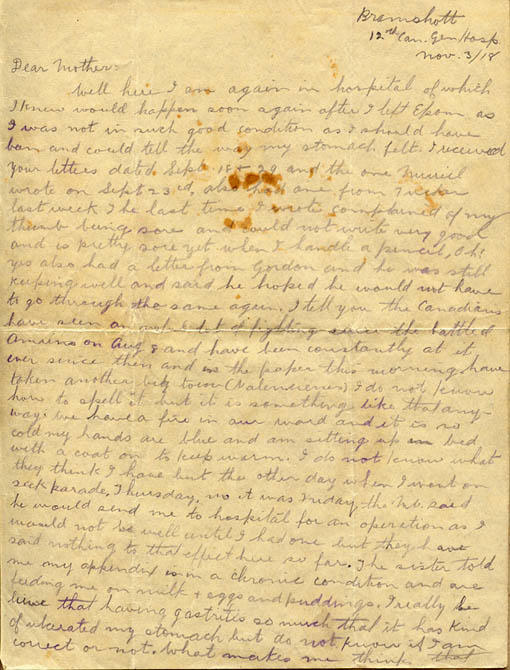 Bramshott
12th Can. Gen Hosp.
Nov. 3/18
Dear Mother:
Well here I am again in hospital of which
I knew would happen soon again after I left Epsom as
I was not in such good condition as I should have
been and could tell the way my stomach felt. I received
your letters dated Sept. 18 + 29 and the one Muriel
wrote on Sept 23rd, also had one from
last week. The last time I wrote complained of my
thumb being sore and could not write very good
and is pretty sore yet when I handle a pencil, Oh!
yes also had a letter from Gordon and he was still
keeping well and said he hoped he would not have
to go through the same again, I tell you the Canadians
have seen an lot of fighting since the battle of
Amiens on Aug 8 and have been constantly at it
ever since then and in the paper this morning have
taken another big town (Valenciennes) I do not know
how to spell it but it is something like that any-
way. We have a fire in our ward and it is so
cold my hands are blue and am sitting up in bed
with a coat on to keep warm. I do not know what
they think I have but the other day when I went on
sick parade, Thursday, no it was Friday, the M.O. said
he would send me to hospital for an operation as I
would not be well until I had one but they have
said nothing to that effect here so far. The sister told
me my appendix is in a chronic condition and are
feeding me on milk + eggs and puddings. I really be
lieve that having gastrites so much that it has kind
of ulcerated my stomach but do not know if I am
correct or not. What makes me think that